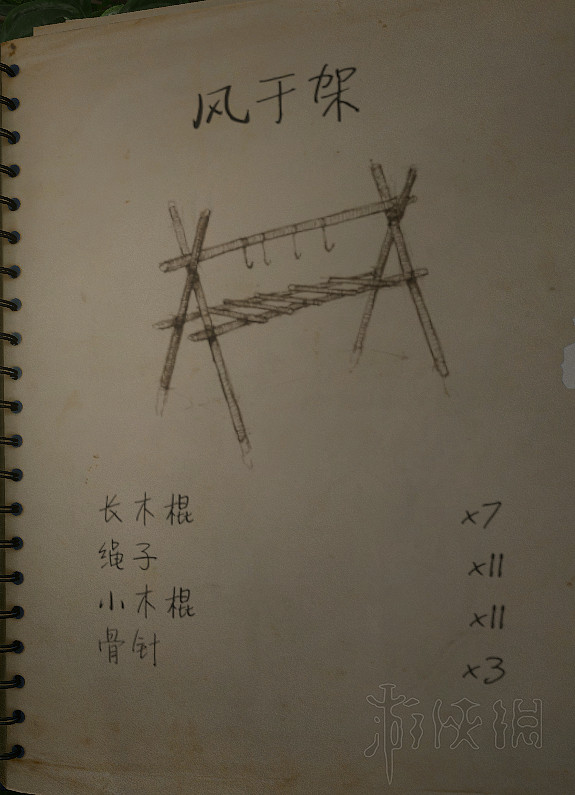 风干架
长木棍 x7
绳子 x11
小木棍 x11
骨针 x3
游侠網